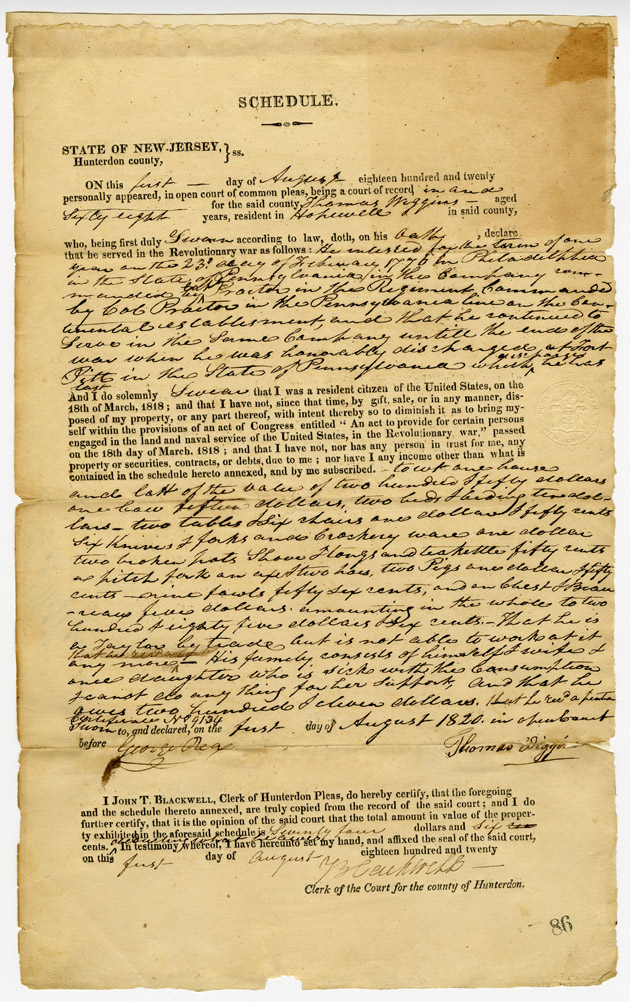 SCHEDULE.
STATE OF NEW-JERSEY, } ss.
Hunterdon county,
ON this first — day of August eighteen hundred and twenty
personally appeared, in open court of common pleas, being a court of record in and
for the said county Thomas Wiggins — aged
Sixty eight years, resident in Hopewell in said county,
who, being first duly Sworn according to law, doth, on his oath, declare
that he served in the Revolutionary war as follows: He enlisted for the term of one
year on the 23d day of February 1776 in Philadelphia
in the State of Pennsylvania, in the Company com-
manded by Capt Proctor in the Regiment Commanded
by Col. Proctor in the Pennsylvania line on the Con-
tinental establisment, and that he continued to
Serve in the Same Company untill the end of the
war when he was honorably discharged at Fort
Pitt in the State of Pennsylvania which discharge he has
lost
And I do solemnly Swear that I was a resident citizen of the United States, on the
18th of March, 1818; and that I have not, since that time, by gift, sale, or in any manner, dis-
posed of my property, or any part thereof, with intent thereby so to diminish it as to bring my-
self within the provisions of an act of Congress entitled "An act to provide for certain persons
engaged in the land and naval service of the United States, in the Revolutionary war," passed
on the 18th day of March, 1818; and that I have not, nor has any person in trust for me, any
property or securities, contracts, or debts, due to me; nor have I any income other than what is
contained in the schedule hereto annexed, and by me subscribed. — to wit one house
and lott of the value of two hundred & fifty dollars
one Cow fifteen dollars, two beds & beding ten dol-
lars — two tables & Six chairs one dollar & fifty cents
Six Knives & forks and Crockery ware one dollar
two broken pots Shovel & tongs and teakettle fifty cents
a pitch fork an axe & two hoes, two Pigs one dollar & fifty
cents — nine fowls fifty six cents, and an Chest & Beau-
reau five dollars amounting in the whole to two
hundred & eighty five dollars & Six cents — that he is
a Taylor by trade but is not able to work at it
any more — His family consists of himself & wife &
one daughter who is sick with the Consumption
& cannot do any thing for her Support, And that he
owes two hundred & eleven dollars. that he recd a pension
Certificate No 9134
Sworn to, and declared, on the first day of August 1820. in open Court
before George Rea
Thomas Wiggins
I JOHN T. BLACKWELL, Clerk of Hunterdon Pleas, do hereby certify, that the foregoing
and the schedule thereto annexed, are truly copied from the record of the said court; and I do
further certify, that it is the opinion of the said court that the total amount in value of the proper-
ty exhibited in the aforesaid schedule is Seventy four dollars and Six
cents. In testimony whereof, I have hereunto set my hand, and affixed the seal of the said court,
on this first day of august eighteen hundred and twenty
Blackwell
Clerk of the Court for the county of Hunterdon.
86